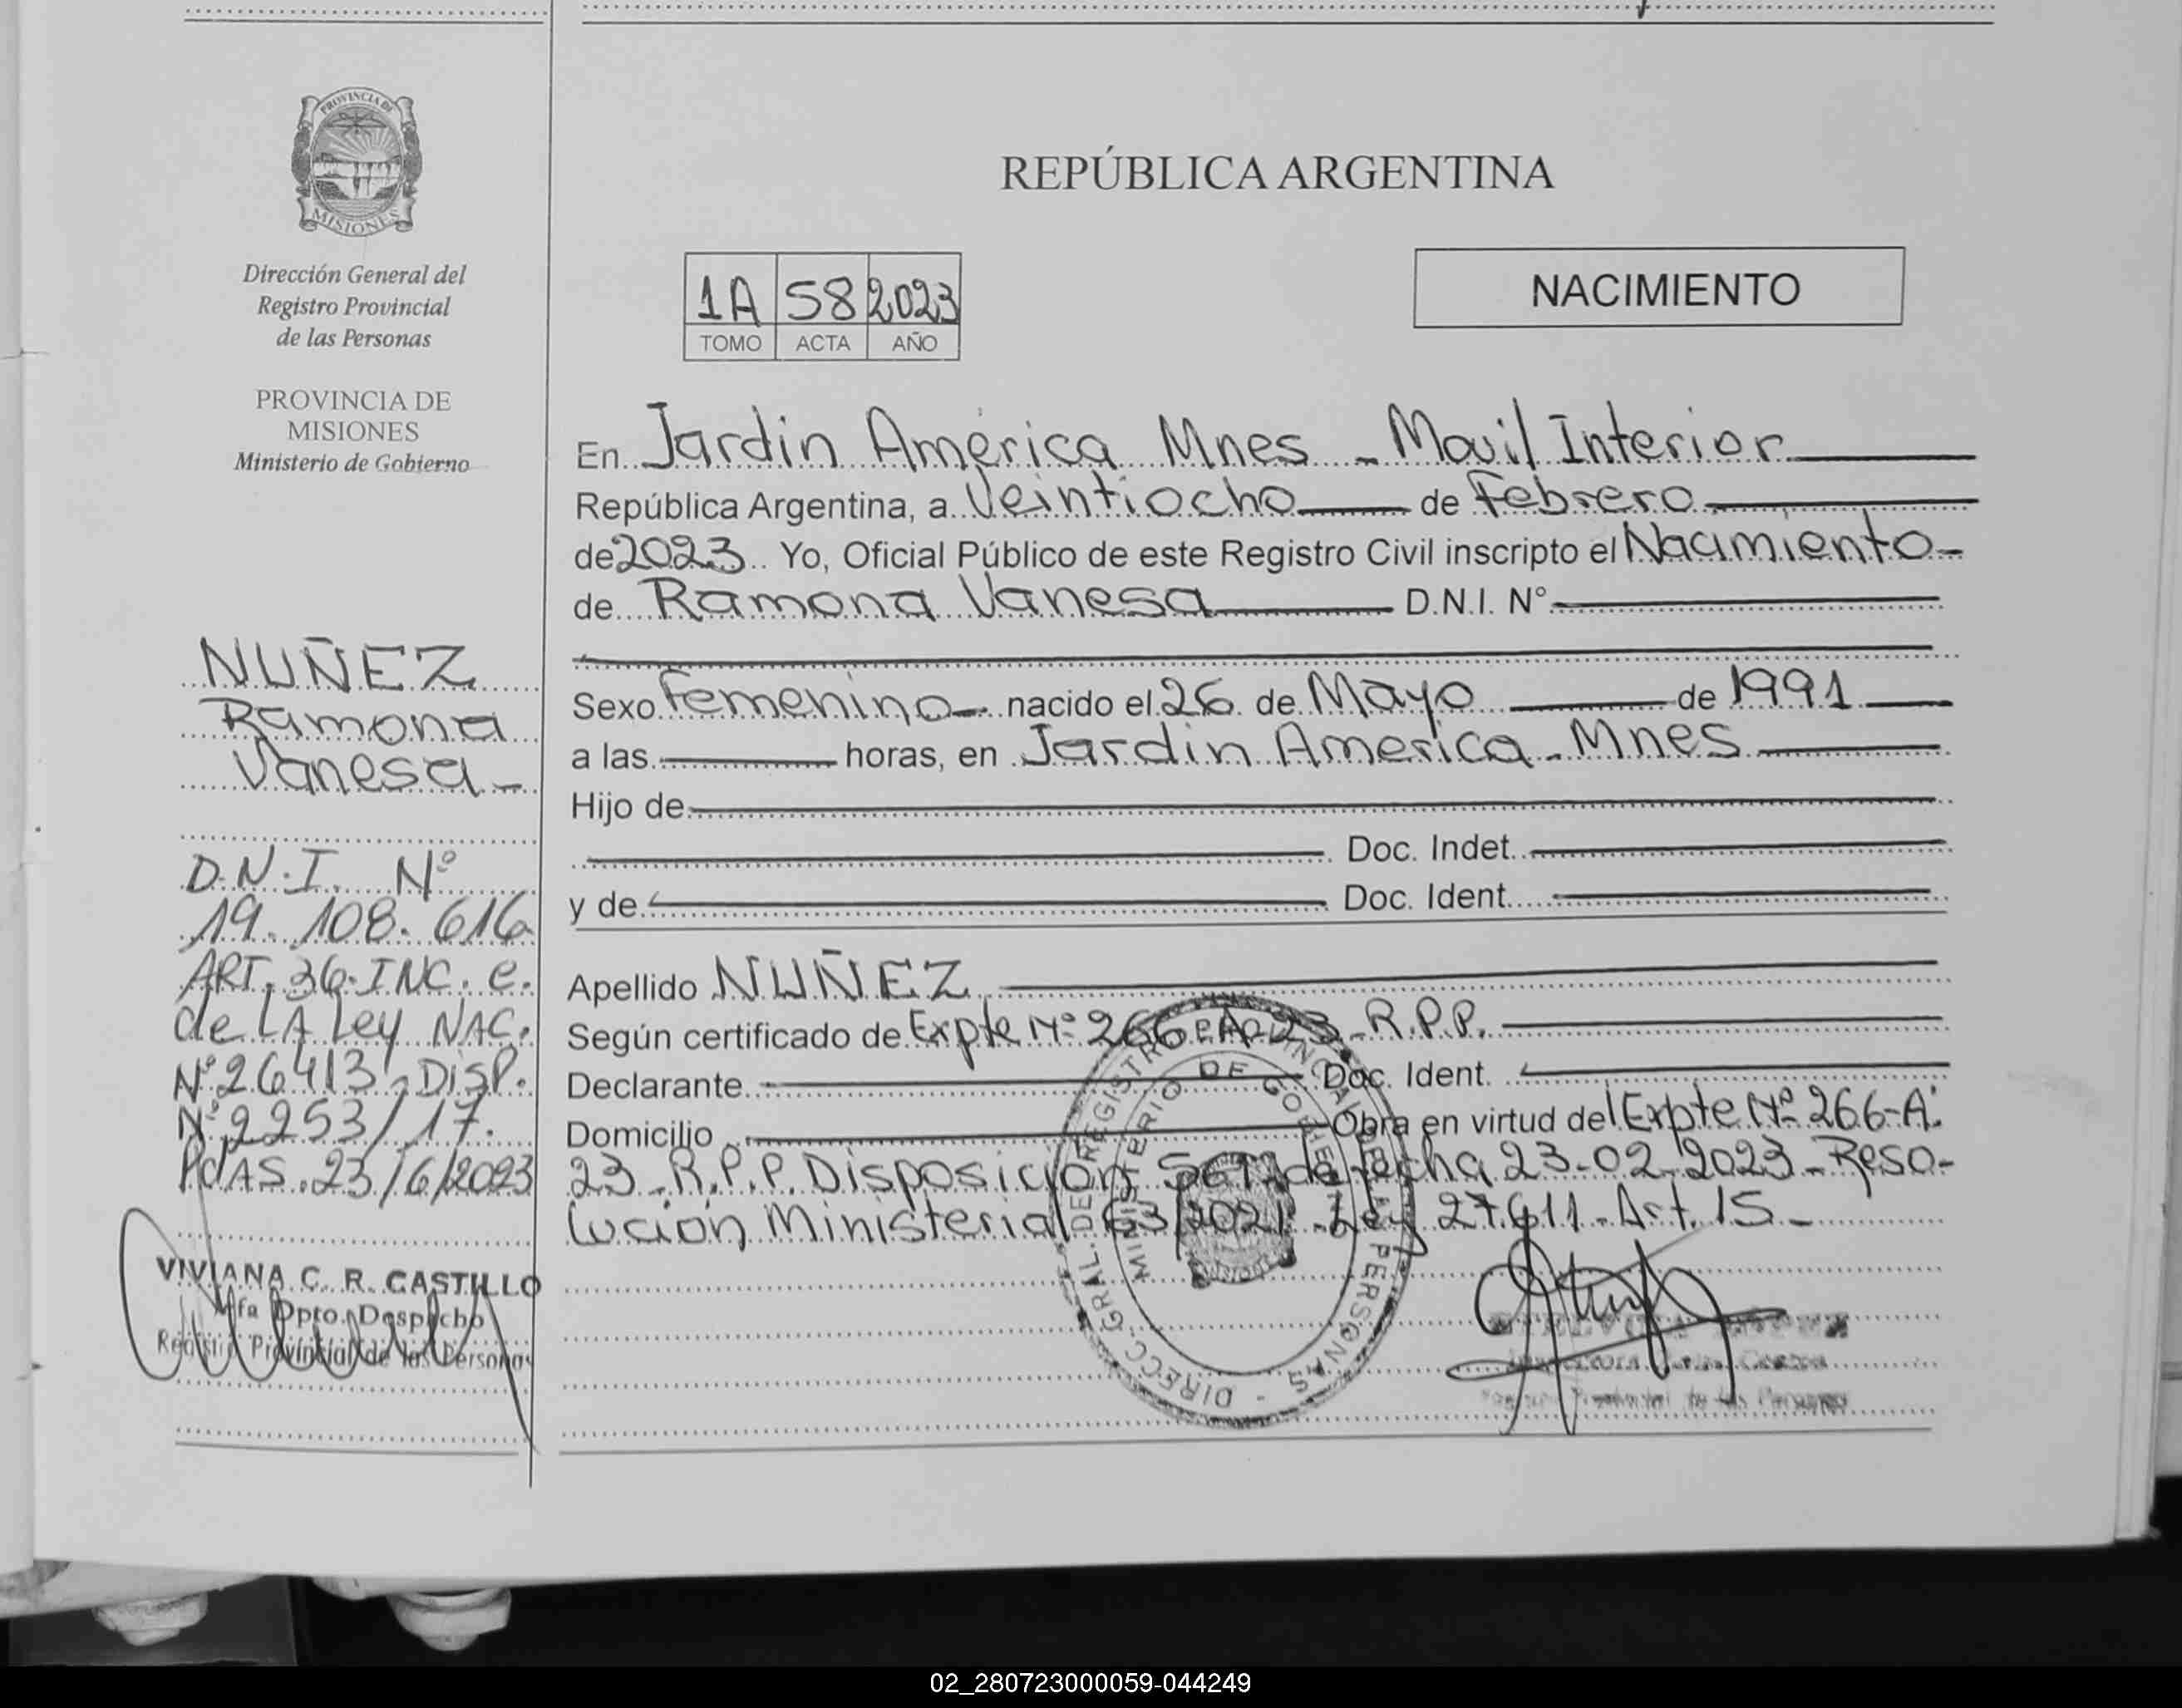 PROVINCIA DE
MISIONES
Dirección General del
Registro Provincial
de las Personas
PROVINCIA DE
MISIONES
Ministerio de Gobierno
NUÑEZ
Ramona
Vanesa -
D.N.I. Nº
19.108.616
ART. 36. INC. e.
de LA Ley NAC.
Nº 26413, DISP.
Nº 2253/17.
PdAS. 23/6/2023
VIVIANA C. R. CASTILLO
Dpto. Despacho
Registro Provincial de las Personas
REPÚBLICA ARGENTINA
1A 58 2023
TOMO ACTA AÑO
NACIMIENTO
En Jardin América Mnes - Movil Interior
República Argentina, a Veintiocho de Febrero
de 2023 Yo, Oficial Público de este Registro Civil inscripto el Nacimiento -
de Ramona Vanesa D.N.I. N°
Sexo Femenino nacido el 26 de Mayo de 1991
a las horas, en Jardin America - Mnes
Hijo de
Doc. Indet.
y de Doc. Ident.
Apellido NUÑEZ
Según certificado de Expte Nº 266-A-23 - R.P.P.
Declarante Doc. Ident.
Domicilio Obra en virtud del Expte Nº 266-A-
23 - R.P.P. Disposición de fecha 23-02-2023 - Reso-
lución Ministerial 63/2021 - Ley 27.611 - Art. 15 -
DIRECC. GRAL. DE REGISTRO PROVINCIAL DE LAS PERSONAS -
MINISTERIO DE GOBIERNO
MISIONES
02_280723000059-044249